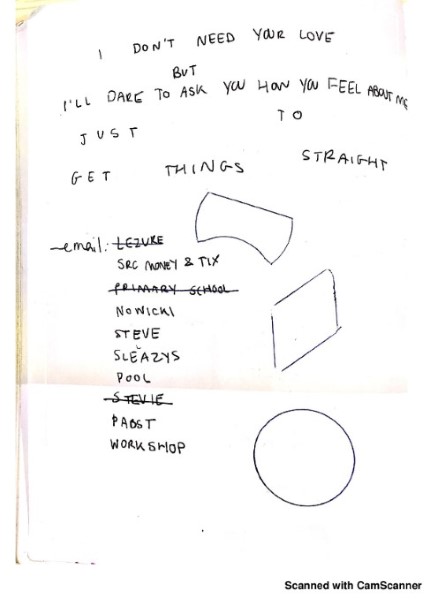 I DON'T NEED YOUR LOVE
BUT
I'LL DARE TO ASK YOU HOW YOU FEEL ABOUT ME
JUST TO
GET THINGS STRAIGHT
email: LEZURE
SRC MONEY & TIX
PRIMARY SCHOOL
NOWICKI
STEVE
SLEAZYS
POOL
STEVIE
PABST
WORKSHOP
Scanned with CamScanner